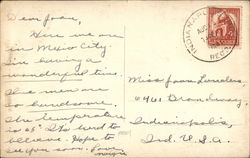 Dear Joan,
Here we are
in Mexico City.
I'm having a
wonderful time.
The men are
so handsome.
The temperature
is 65°. It's hard to
believe. Hope to
see you soon. Love,
INDIANAPOLIS
Miss Joan
6461 Broadway,
Indianapolis,
Ind. U.S.A.